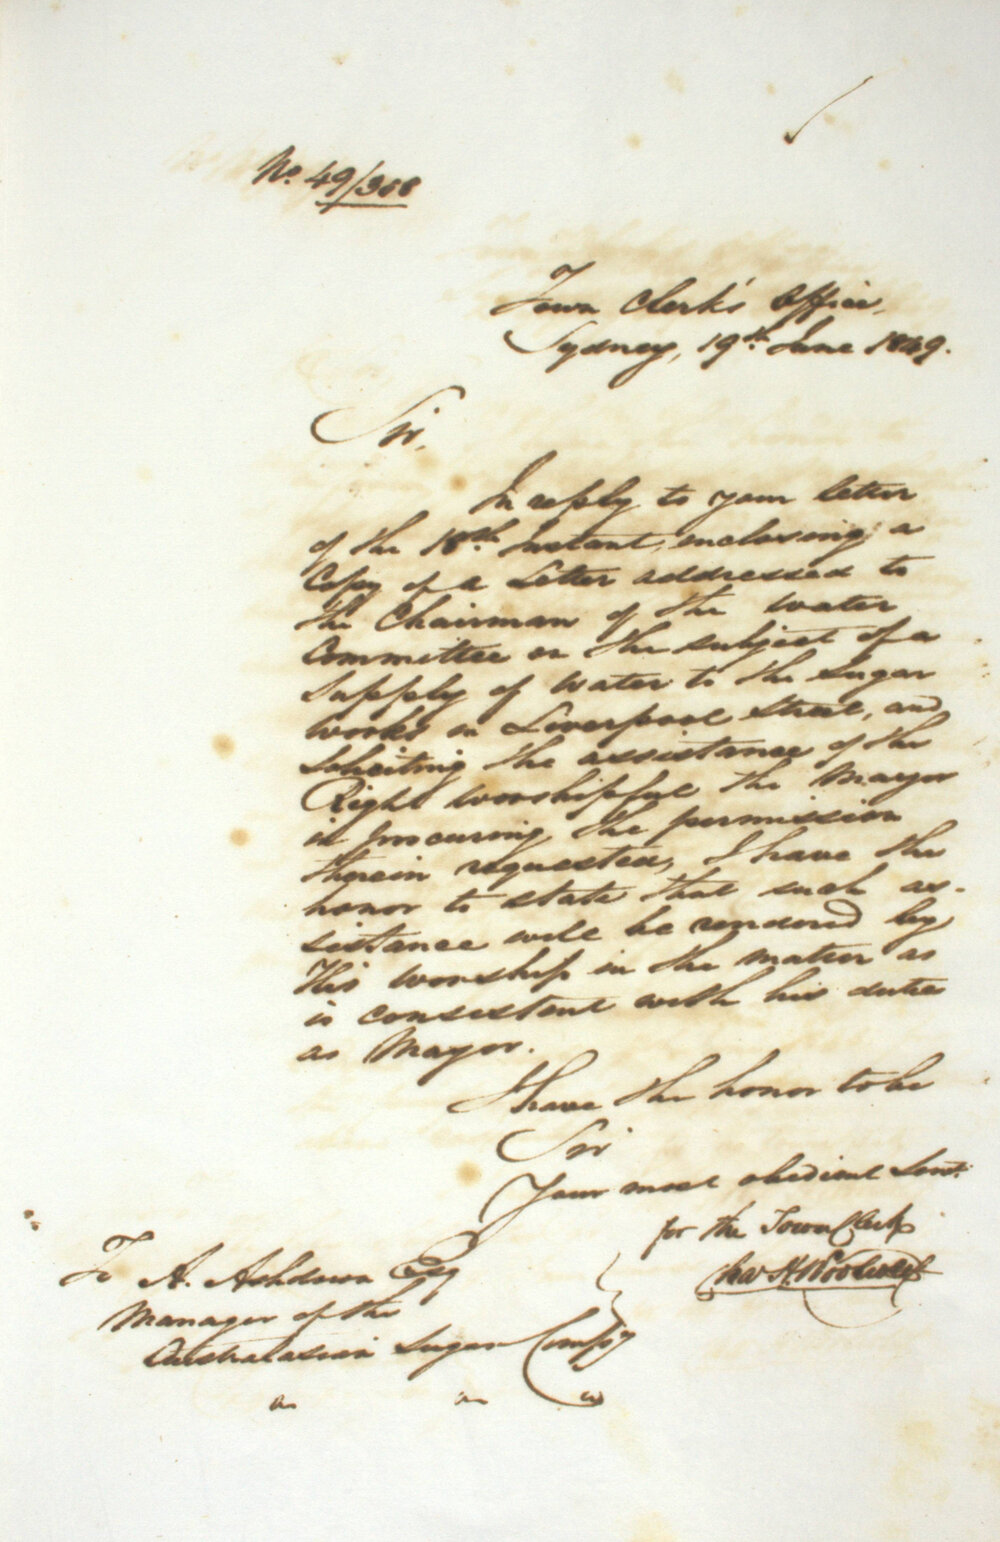 No. 49/368
Town Clerk's Office,
Sydney, 19th June 1849.
Sir,
In reply to your letter
of the 18th Instant, enclosing a
Copy of a Letter addressed to
the Chairman of the Water
Committee on the subject of a
supply of water to the Sugar
works in Liverpool Street, and
soliciting the assistance of the
Right Worshipful the Mayor
in procuring the permission
therein requested, I have the
honor to state that such as-
sistance will be rendered by
His Worship in the matter as
is consistent with his duties
as Mayor.
I have the honor to be
Sir
Your most obedient Servt.
for the Town Clerk
Chas H. Woolcott
To A. Ashdown Esq
Manager of the
Australasian Sugar Compy